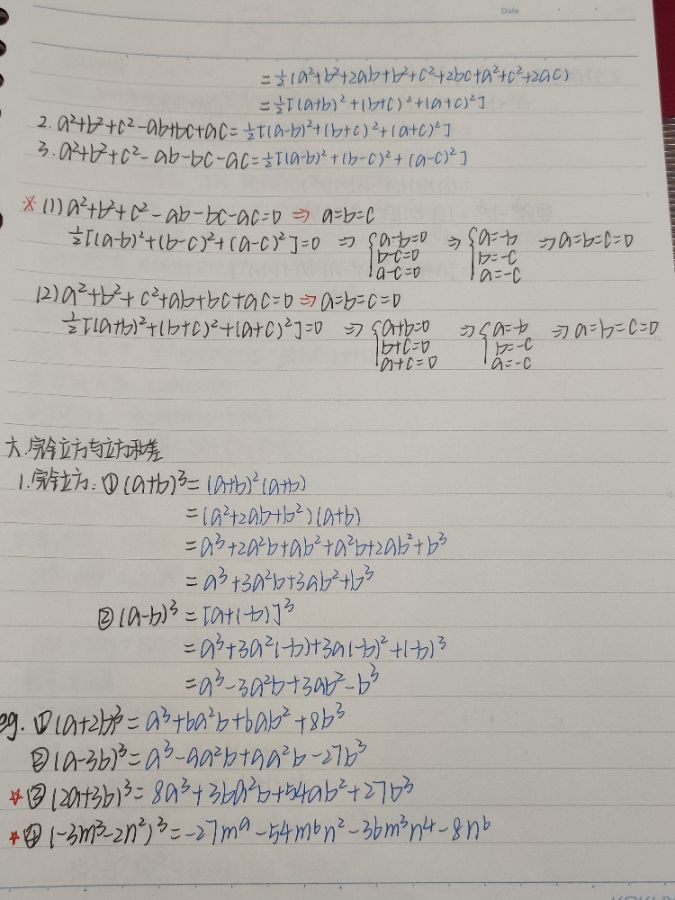 Date
=½(a²+b²+2ab+b²+c²+2bc+a²+c²+2ac)
=½[(a+b)²+(b+c)²+(a+c)²]
2. a²+b²+c²-ab+bc+ac=½[(a-b)²+(b+c)²+(a+c)²]
3. a²+b²+c²-ab-bc-ac=½[(a-b)²+(b-c)²+(a-c)²]
※(1) a²+b²+c²-ab-bc-ac=0 ⇒ a=b=c
½[(a-b)²+(b-c)²+(a-c)²]=0 ⇒ {a-b=0 ⇒ {a=-b ⇒ a=b=c=0
b-c=0 b=-c
a-c=0 a=-c
(2) a²+b²+c²+ab+bc+ac=0 ⇒ a=b=c=0
½[(a+b)²+(b+c)²+(a+c)²]=0 ⇒ {a+b=0 ⇒ {a=-b ⇒ a=b=c=0
b+c=0 b=-c
a+c=0 a=-c
六.完全立方与立方和差
1.完全立方: ①(a+b)³=(a+b)²(a+b)
=(a²+2ab+b²)(a+b)
=a³+2a²b+ab²+a²b+2ab²+b³
=a³+3a²b+3ab²+b³
②(a-b)³=[a+(-b)]³
=a³+3a²(-b)+3a(-b)²+(-b)³
=a³-3a²b+3ab²-b³
eg. ①(a+2b)³=a³+6a²b+6ab²+8b³
②(a-3b)³=a³-9a²b+9a²b-27b³
☆③(2a+3b)³=8a³+36a²b+54ab²+27b³
☆④(-3m³-2n²)³=-27m⁹-54m⁶n²-36m³n⁴-8n⁶